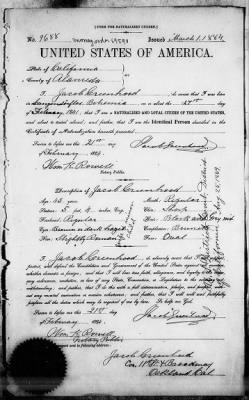 [FORM FOR NATURALIZED CITIZEN.]
No. 9688 Issued March 1, 1884
UNITED STATES OF AMERICA.
State of California
County of Alameda
I, Jacob Greenhood do swear that I was born
in Bohemia on or about the day of
February, that I am a NATURALIZED AND LOYAL CITIZEN OF THE UNITED STATES,
and about to travel abroad; and further, that I am the Identical Person described in the
Certificate of Naturalization herewith presented.
Sworn to before me this 21st day
of February 1884
Jacob Greenhood
Wm. K. Rowell
Notary Public.
Description of Jacob Greenhood
Age: 43 years
Mouth: Regular
Stature: 5 feet, 4 inches Eng.
Forehead: Regular
Eyes: Brown or dark hazel
Complexion: Brunette
Nose: Slightly Roman
Face: Oval
I, Jacob Greenhood do solemnly swear that I will
support, protect, and defend the Constitution and Government of the United States against all enemies,
whether domestic or foreign; and that I will bear true faith, allegiance, and loyalty to the same,
any ordinance, resolution, or law of any State, Convention, or Legislature to the contrary
notwithstanding; and further, that I do this with a full determination, pledge, and purpose, without
any mental reservation or evasion whatsoever; and further, that I will well and faithfully
perform all the duties which may be required of me by law. So help me God.
Sworn to before me this 21st day
of February 1884
Jacob Greenhood
Wm. K. Rowell
Notary Public
Jacob Greenhood
Cor. 11th & Broadway
Oakland Cal